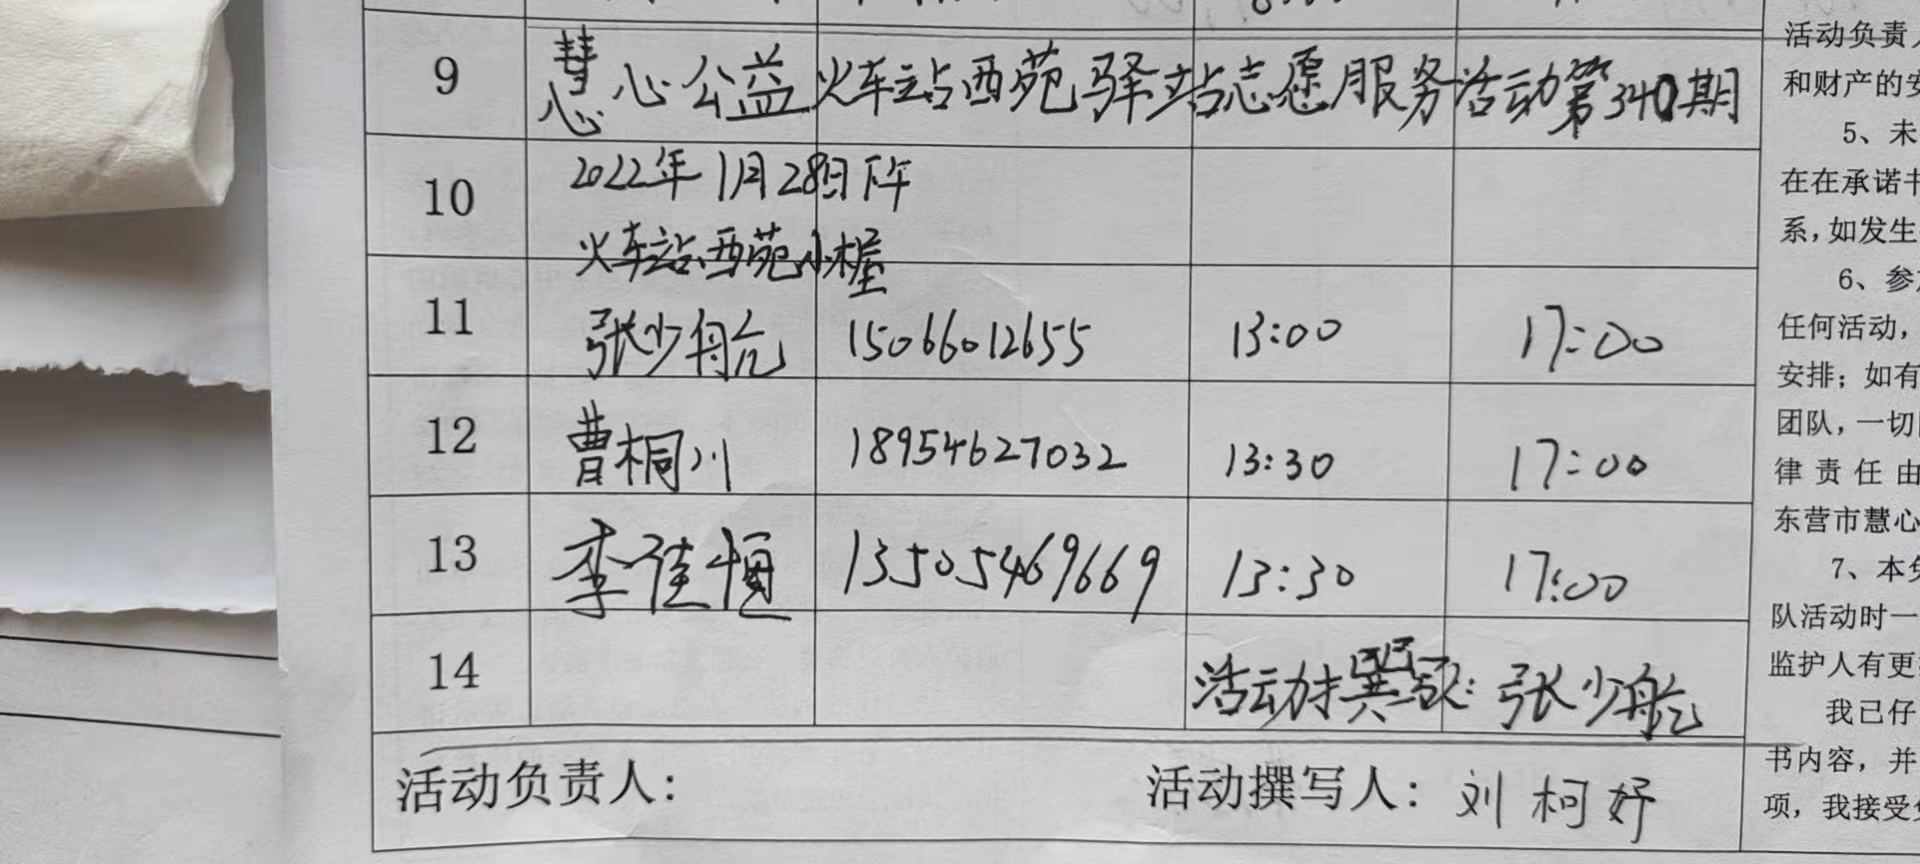 9 慧心公益火车站西苑驿站志愿服务活动第340期
10 2022年1月28日下午
火车站西苑小屋
11 张少航 15066012655 13:00 17:00
12 曹桐川 18954627032 13:30 17:00
13 李佳恒 13505469669 13:30 17:00
14 活动撰写: 张少航
活动负责人: 活动撰写人: 刘柯妤
活动负责人
和财产的安
5、未
在在承诺书
系,如发生
6、参加
任何活动,
安排;如有
团队,一切
律责任由
东营市慧心
7、本免
队活动时一
监护人有更
我已仔
书内容,并
项,我接受